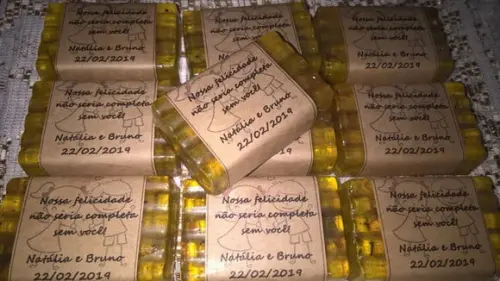 Nossa felicidade
não seria completa
sem você!
Natália e Bruno
22/02/2019
Nossa felicidade
não seria completa
sem você!
Natália e Bruno
22/02/2019
Nossa felicidade
não seria completa
sem você!
Natália e Bruno
22/02/2019
Nossa felicidade
não seria completa
sem você!
Natália e Bruno
22/02/2019
Nossa felicidade
não seria completa
sem você!
Natália e Bruno
22/02/2019
Nossa felicidade
não seria completa
sem você!
Natália e Bruno
22/02/2019
Nossa felicidade
não seria completa
sem você!
Natália e Bruno
22/02/2019
Nossa felicidade
não seria completa
sem você!
Natália e Bruno
22/02/2019
Nossa felicidade
não seria completa
sem você!
Natália e Bruno
22/02/2019